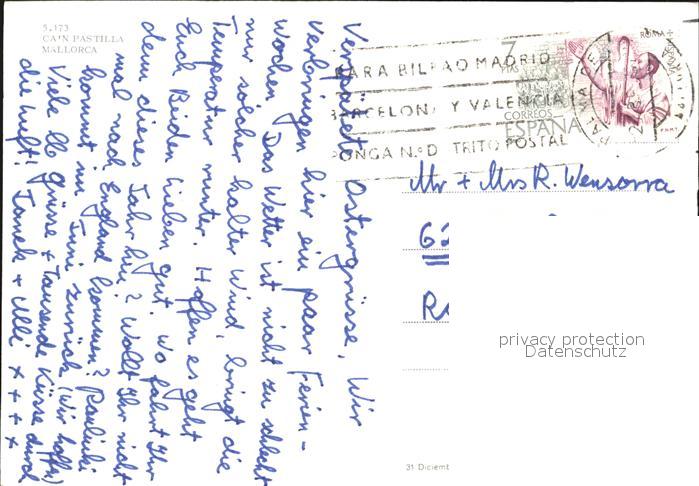 5.173
CA'N PASTILLA
MALLORCA
Verspätete Ostergrüsse. Wir
verbringen hier ein paar Ferien-
wochen. Das Wetter ist nicht zu schlecht
nur solcher kalter Wind, bringt die
Temperatur runter. Hoffen es geht
Euch Beiden Lieben gut. Wo fahrt Ihr
denn dieses Jahr hin? Wollt Ihr nicht
mal nach England kommen?
kommt im Juni zurück (Wir hoffen)
Viele lb Grüsse + Tausende Küsse durch
die Luft! Janek + Ulli x x x x
7
PTAS
CORREOS
ESPAÑA
ROMA
PARA BILBAO MADRID
BARCELONA Y VALENCIA
PONGA N.º DISTRITO POSTAL
PALMA DE
Mr + Mrs R. Wensorra
62
R
privacy protection
Datenschutz
31 Diciemb